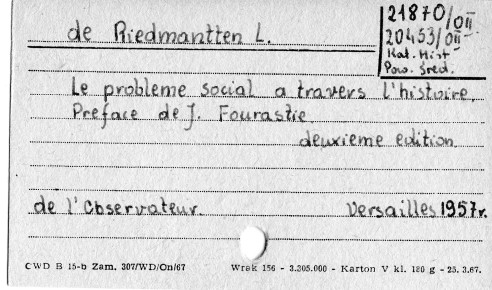 21870/OII
de Riedmantten L.
20453/OII
Kat. Hist
Pow. Śred.
Le probleme social a travers l'histoire.
Preface de J. Fourastie
deuxieme edition
de l'Observateur. Versailles 1957r.
CWD B 15-b Zam. 307/WD/On/67 Wrak 156 - 3.205.000 - Karton V kl. 180 g - 25. 3.67.